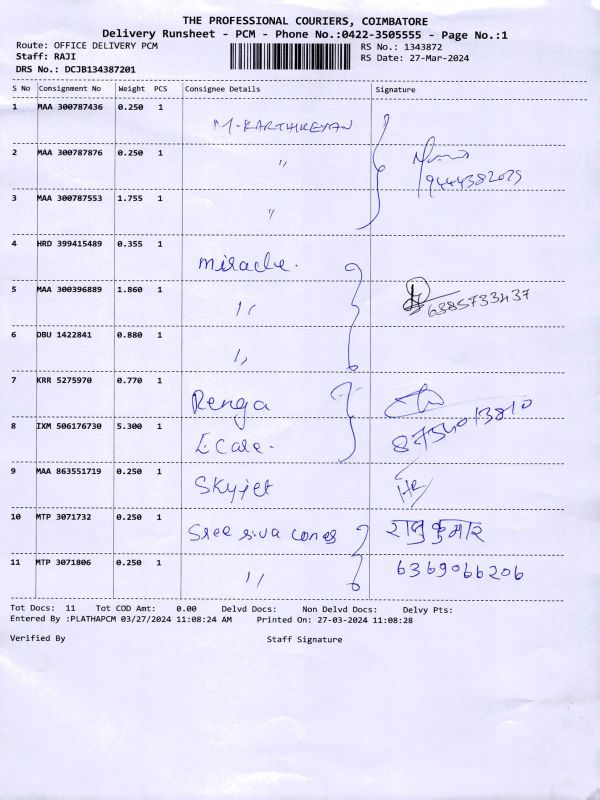 THE PROFESSIONAL COURIERS, COIMBATORE
Delivery Runsheet - PCM - Phone No.:0422-3505555 - Page No.:1
Route: OFFICE DELIVERY PCM
RS No.: 1343872
Staff: RAJI
RS Date: 27-Mar-2024
DRS No.: DCJB134387201
S No Consignment No Weight PCS Consignee Details Signature
1 MAA 300787436 0.250 1 M. KARTHIKEYAN
2 MAA 300787876 0.250 1 〃
9444382029
3 MAA 300787553 1.755 1 〃
4 HRD 399415489 0.355 1 miracle.
5 MAA 300396889 1.860 1 〃 6385733437
6 DBU 1422841 0.880 1 〃
7 KRR 5275970 0.770 1 Renga
8 IXM 506176730 5.300 1 Ecare. 8754013810
9 MAA 863551719 0.250 1 Skyjet
10 MTP 3071732 0.250 1 Sree siva cones राजु कुमार
11 MTP 3071806 0.250 1 〃 6369066206
Tot Docs: 11 Tot COD Amt: 0.00 Delvd Docs: Non Delvd Docs: Delvy Pts:
Entered By :PLATHAPCM 03/27/2024 11:08:24 AM Printed On: 27-03-2024 11:08:28
Verified By Staff Signature